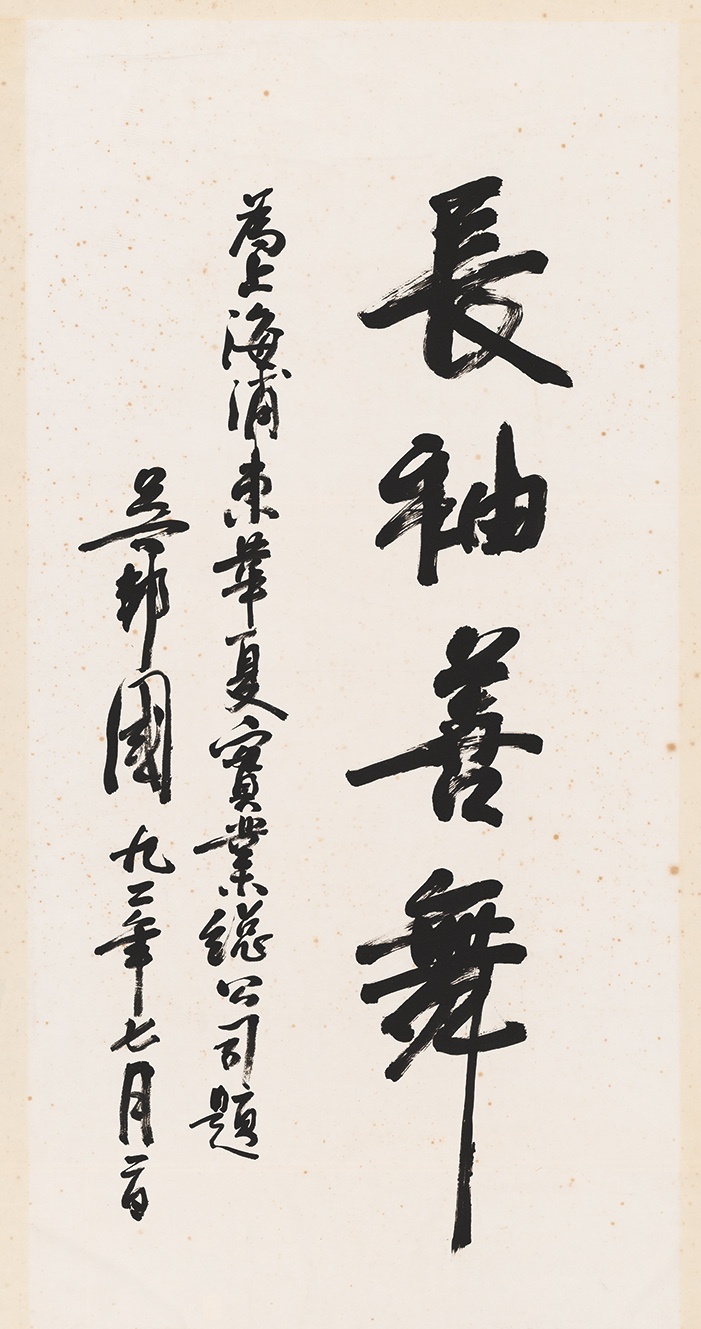 長袖善舞
為上海浦東華夏實業總公司題
吳邦國 九二年七月二日